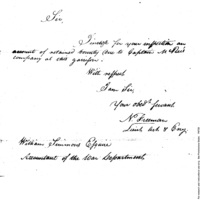 Sir,
I inclose for your inspection an
account of retained bounty due to Captain
company at this garrison.
With respect
I am Sir,
Your obed. Servant
N. Freeman
Lieut Art. & Eng.
William Simmons Esquire
Accountant of the War Department